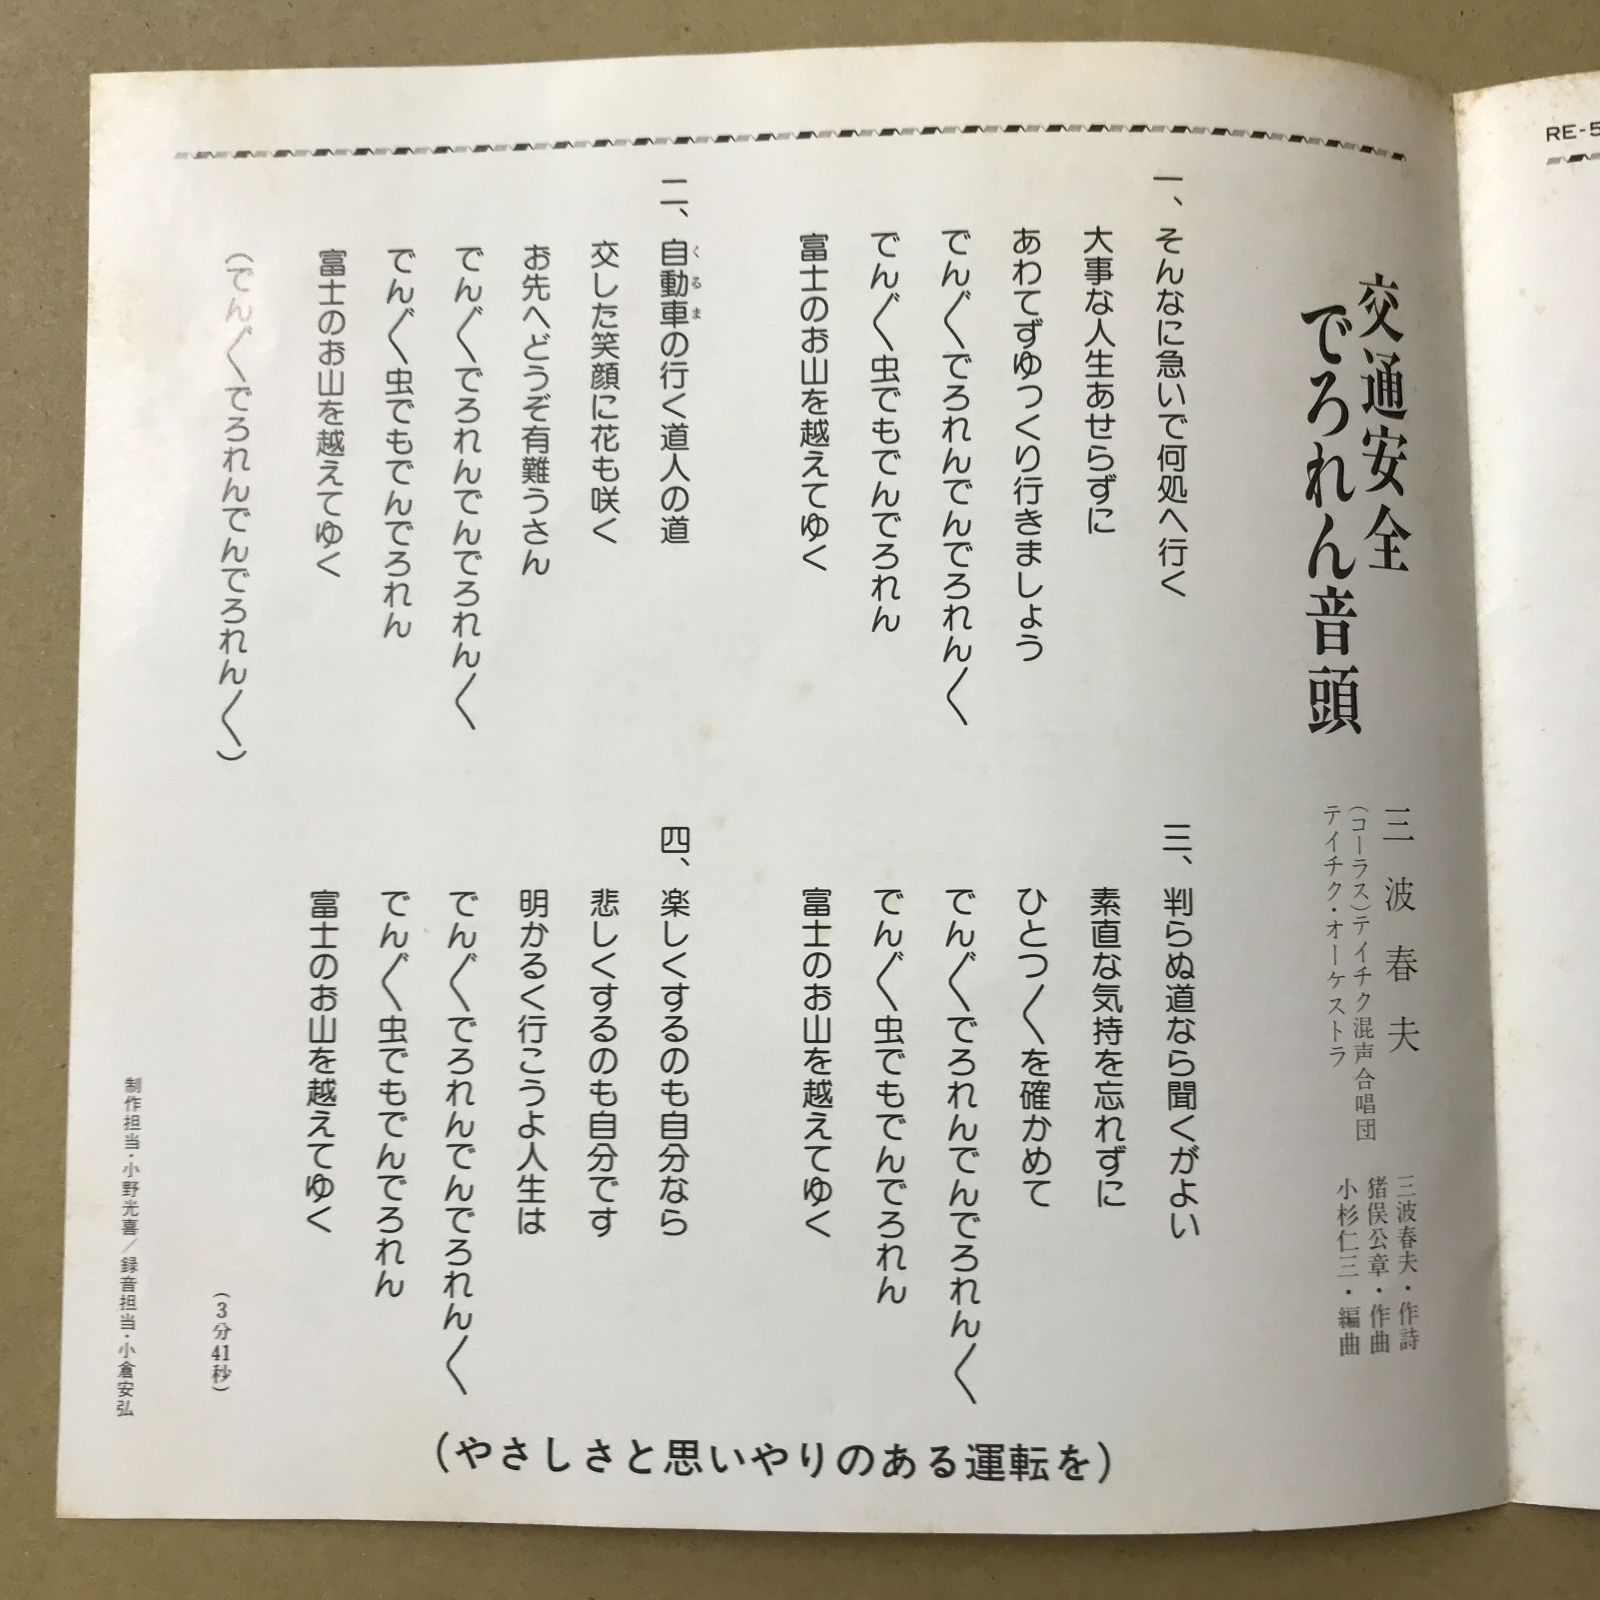 交通安全
でろれん音頭
三波春夫
(コーラス)テイチク混声合唱団
テイチク・オーケストラ
三波春夫・作詩
猪俣公章・作曲
小杉仁三・編曲
一、そんなに急いで何処へ行く
大事な人生あせらずに
あわてずゆつくり行きましょう
でん〲でろれんでんでろれん〱
でん〲虫でもでんでろれん
富士のお山を越えてゆく
二、自動車の行く道人の道
くるま
交した笑顔に花も咲く
お先へどうぞ有難うさん
でん〲でろれんでんでろれん〱
でん〲虫でもでんでろれん
富士のお山を越えてゆく
(でん〲でろれんでんでろれん〱)
三、判らぬ道なら聞くがよい
素直な気持を忘れずに
ひとつ〱を確かめて
でん〲でろれんでんでろれん〱
でん〲虫でもでんでろれん
富士のお山を越えてゆく
四、楽しくするのも自分なら
悲しくするのも自分です
明かるく行こうよ人生は
でん〲でろれんでんでろれん〱
でん〲虫でもでんでろれん
富士のお山を越えてゆく
(3分41秒)
制作担当・小野光喜/録音担当・小倉安弘
(やさしさと思いやりのある運転を)
RE-5